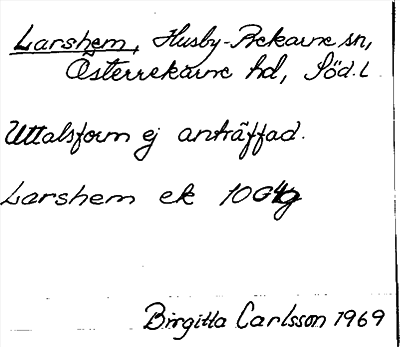 Larshem, Husby-Rekarne sn,
Österrekarne hd, Söd.l
Uttalsform ej anträffad.
Larshem ek 10G4g
Birgitta Carlsson 1969